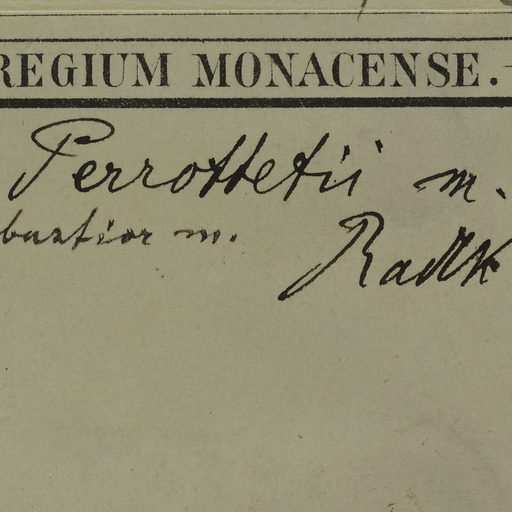 REGIUM MONACENSE.
Perrottetii m.
bustior m.
Radlk